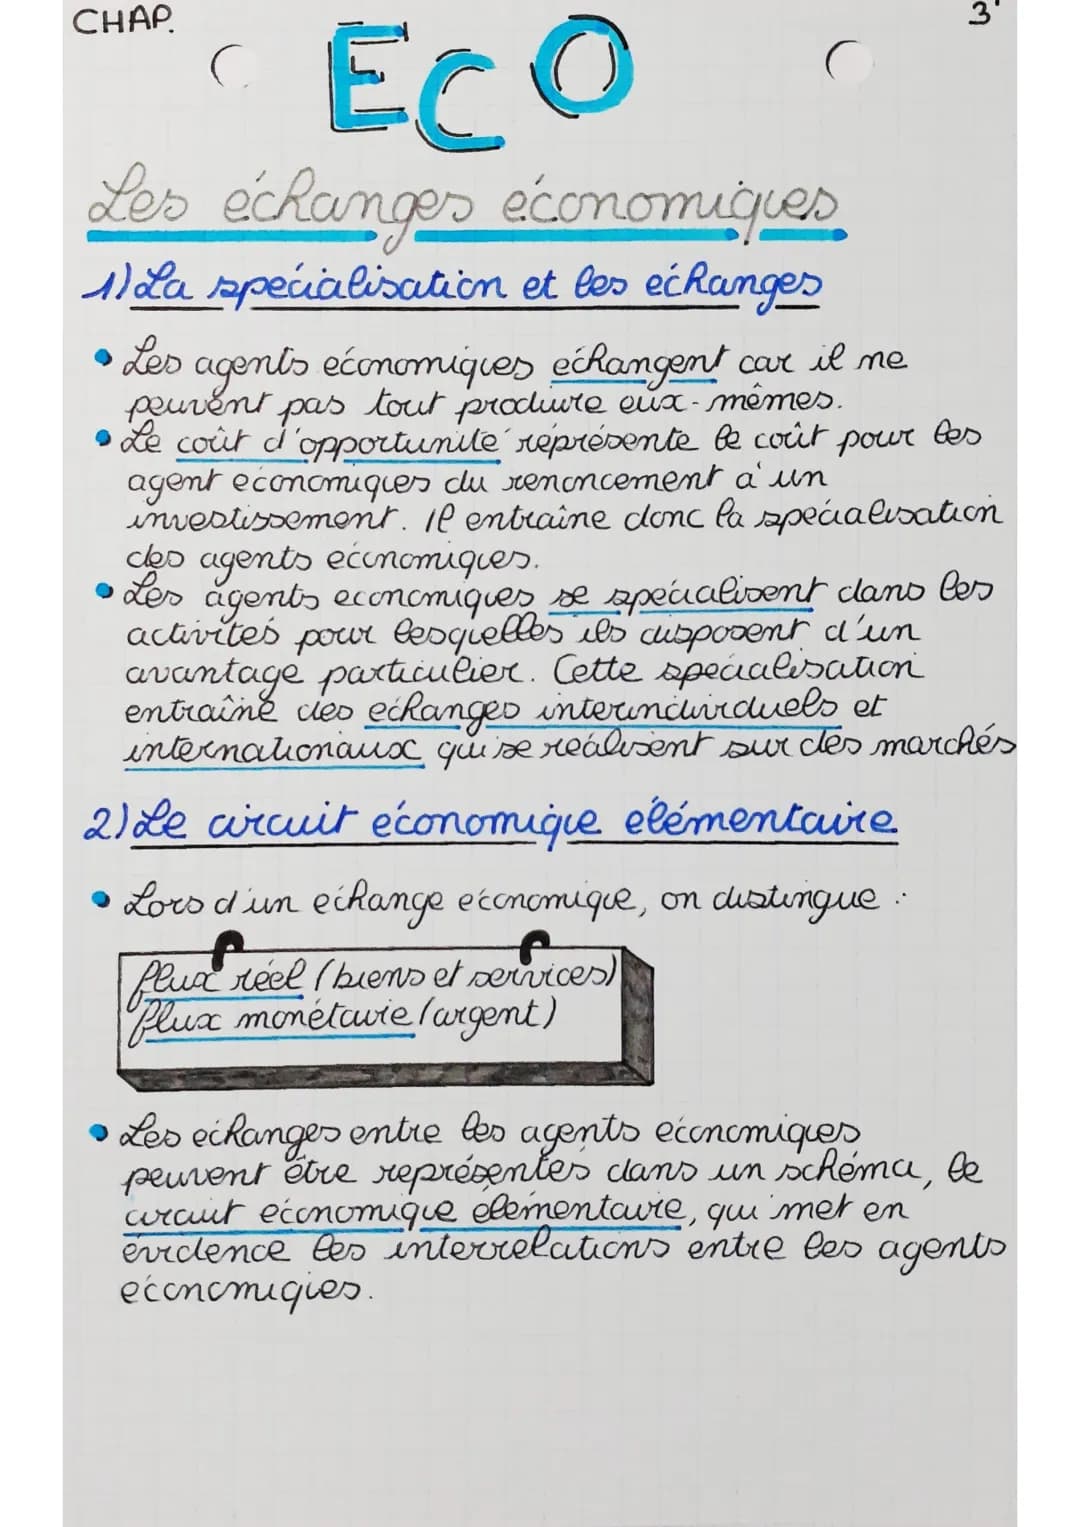 CHAP.
3
ECO
Les échanges économiques
1) La spécialisation et les échanges
• Les agents économiques échangent car il ne
peuvent pas tout produire eux-mêmes.
• Le coût d'opportunité représente le coût pour les
agent économiques du renoncement à un
investissement. Il entraîne donc la spécialisation
des agents économiques.
• Les agents économiques se spécialisent dans les
activités pour lesquelles ils disposent d'un
avantage particulier. Cette spécialisation
entraîne des échanges interindividuels et
internationaux qui se réalisent sur des marchés
2) Le circuit économique élémentaire
• Lors d'un échange économique, on distingue :
flux réel (biens et services)
flux monétaire (argent)
• Les échanges entre les agents économiques
peuvent être représentés dans un schéma, le
circuit économique élémentaire, qui met en
évidence les interrelations entre les agents
économiques.